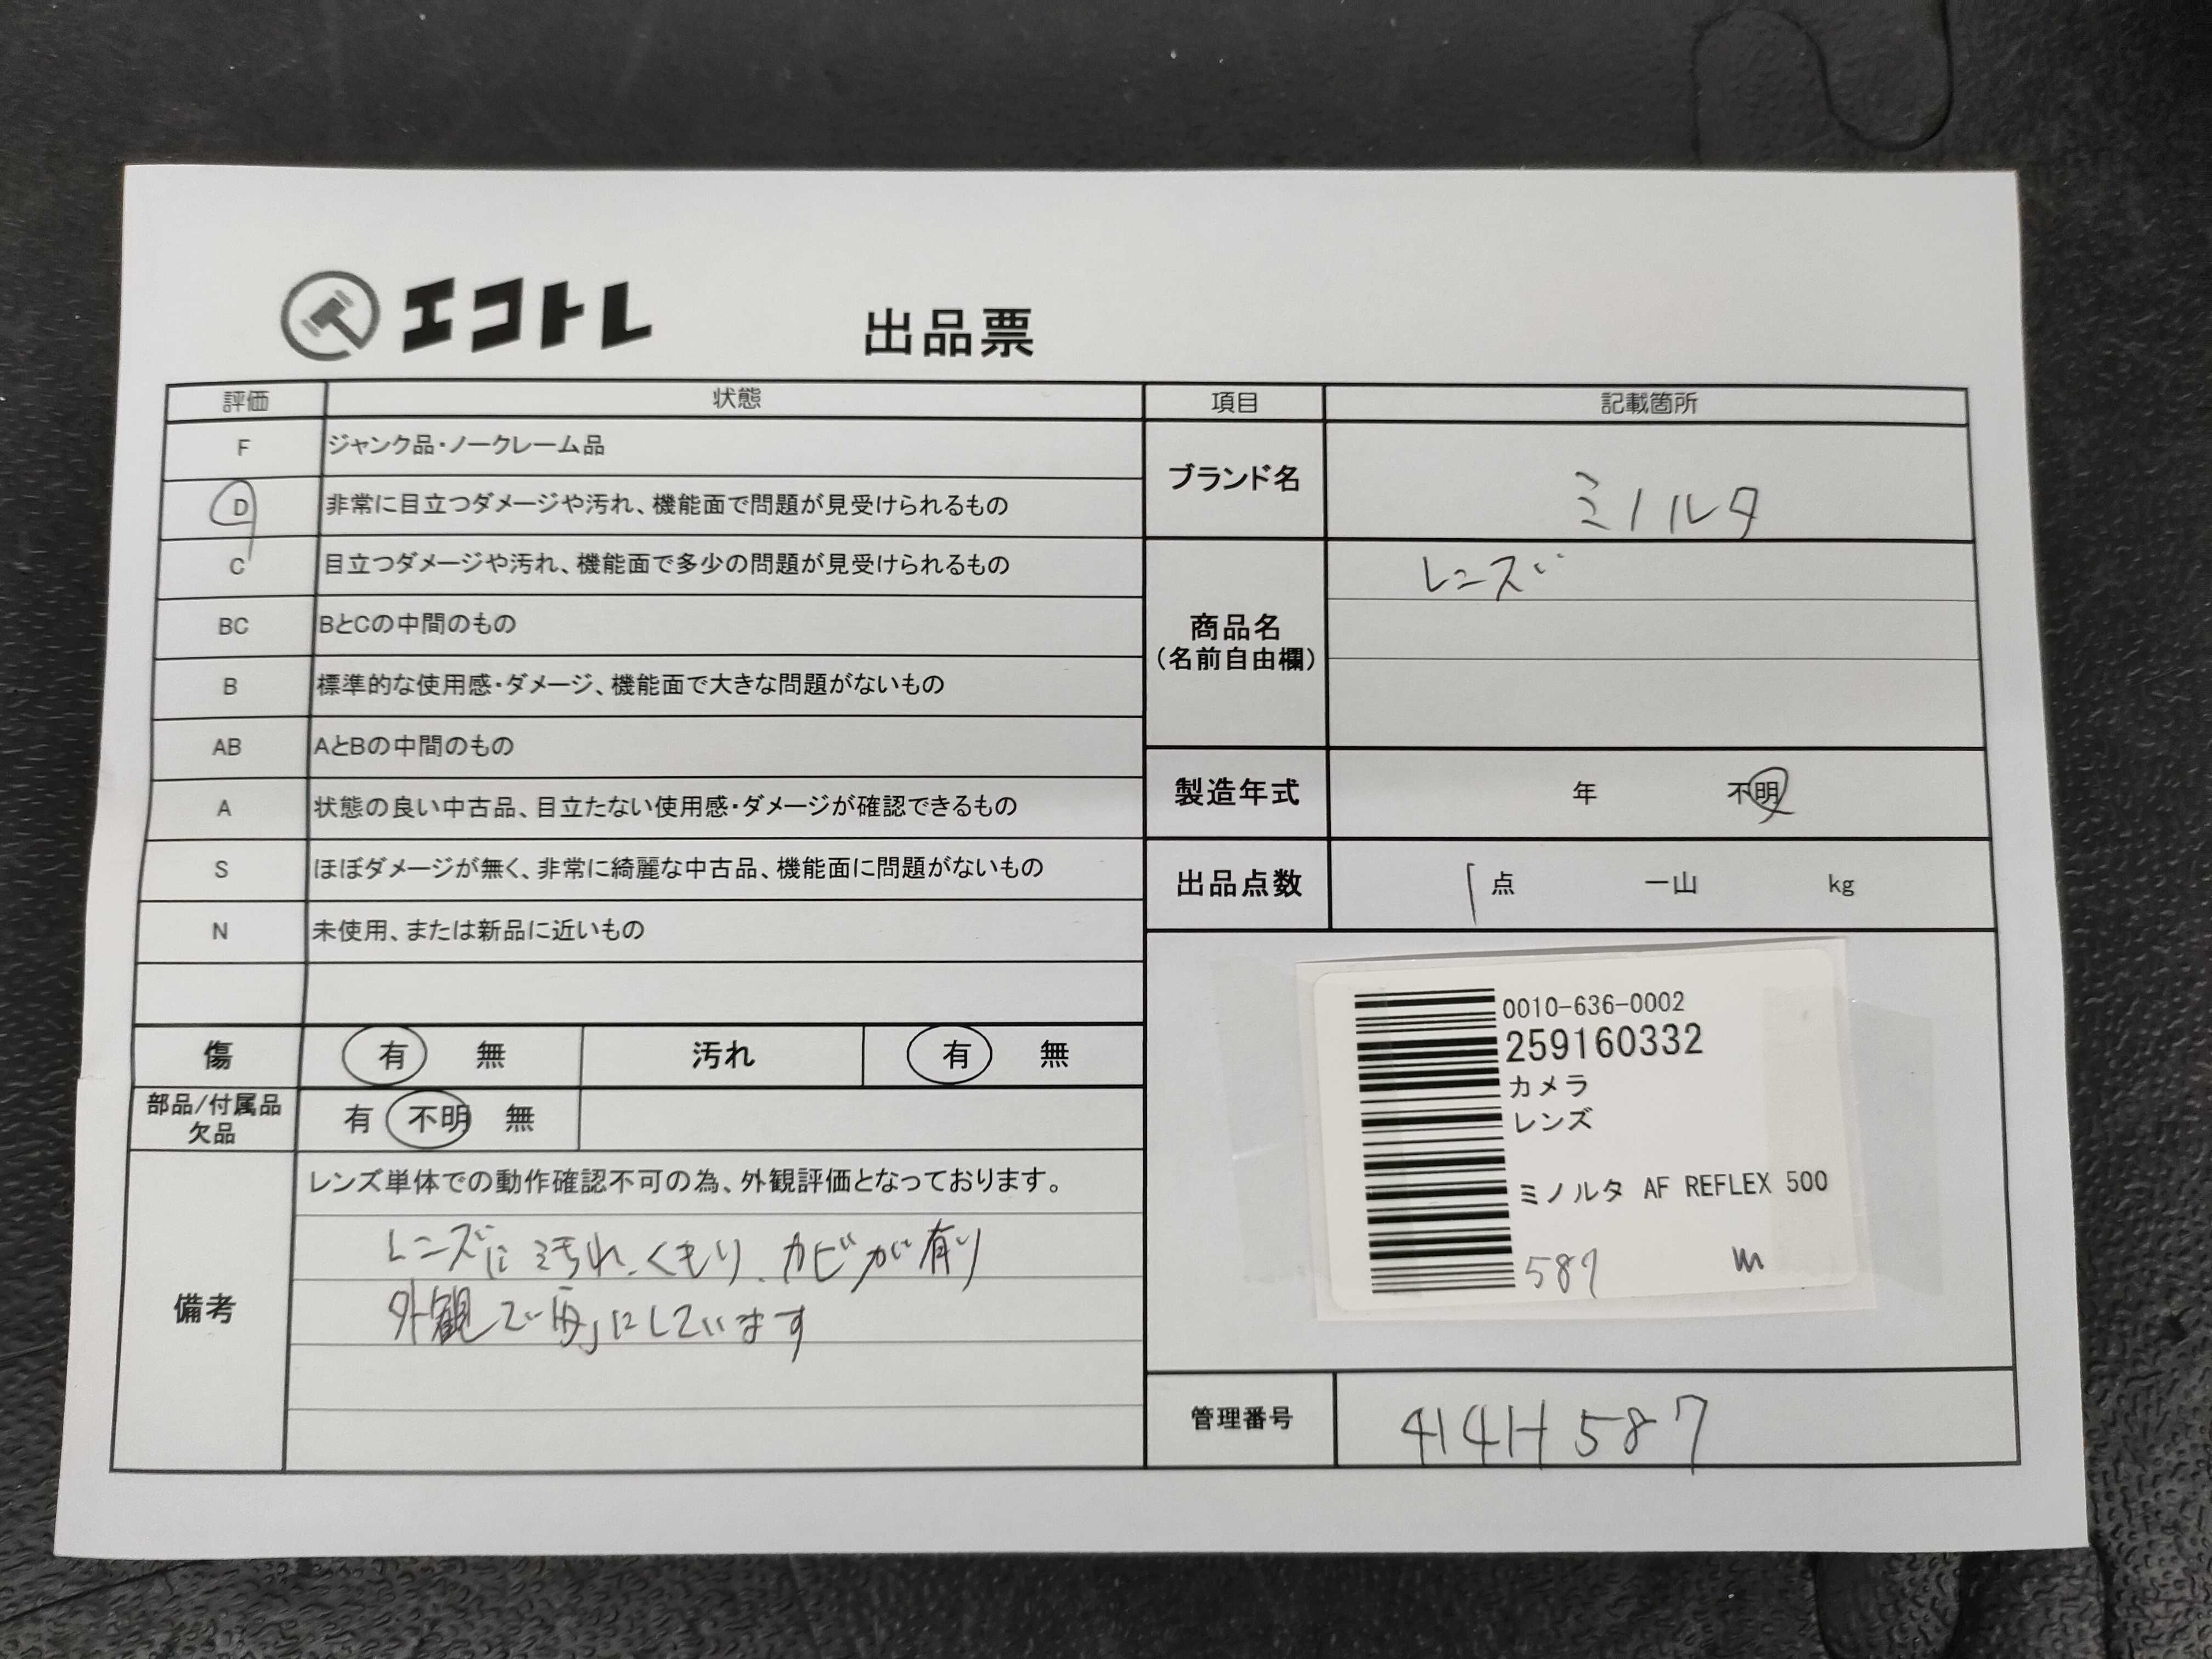 エコトレ
出品票
評価 状態
F ジャンク品・ノークレーム品
D 非常に目立つダメージや汚れ、機能面で問題が見受けられるもの
C 目立つダメージや汚れ、機能面で多少の問題が見受けられるもの
BC BとCの中間のもの
B 標準的な使用感・ダメージ、機能面で大きな問題がないもの
AB AとBの中間のもの
A 状態の良い中古品、目立たない使用感・ダメージが確認できるもの
S ほぼダメージが無く、非常に綺麗な中古品、機能面に問題がないもの
N 未使用、または新品に近いもの
傷 有 無 汚れ 有 無
部品/付属品
欠品
有 不明 無
備考
レンズ単体での動作確認不可の為、外観評価となっております。
レンズに汚れ、くもり、カビが有り
外観で にしています
項目 記載箇所
ブランド名 ミノルタ
商品名
(名前自由欄)
レンズ
製造年式 年 不明
出品点数 1点 一山 kg
0010-636-0002
259160332
カメラ
レンズ
ミノルタ AF REFLEX 500
587
管理番号 414H587